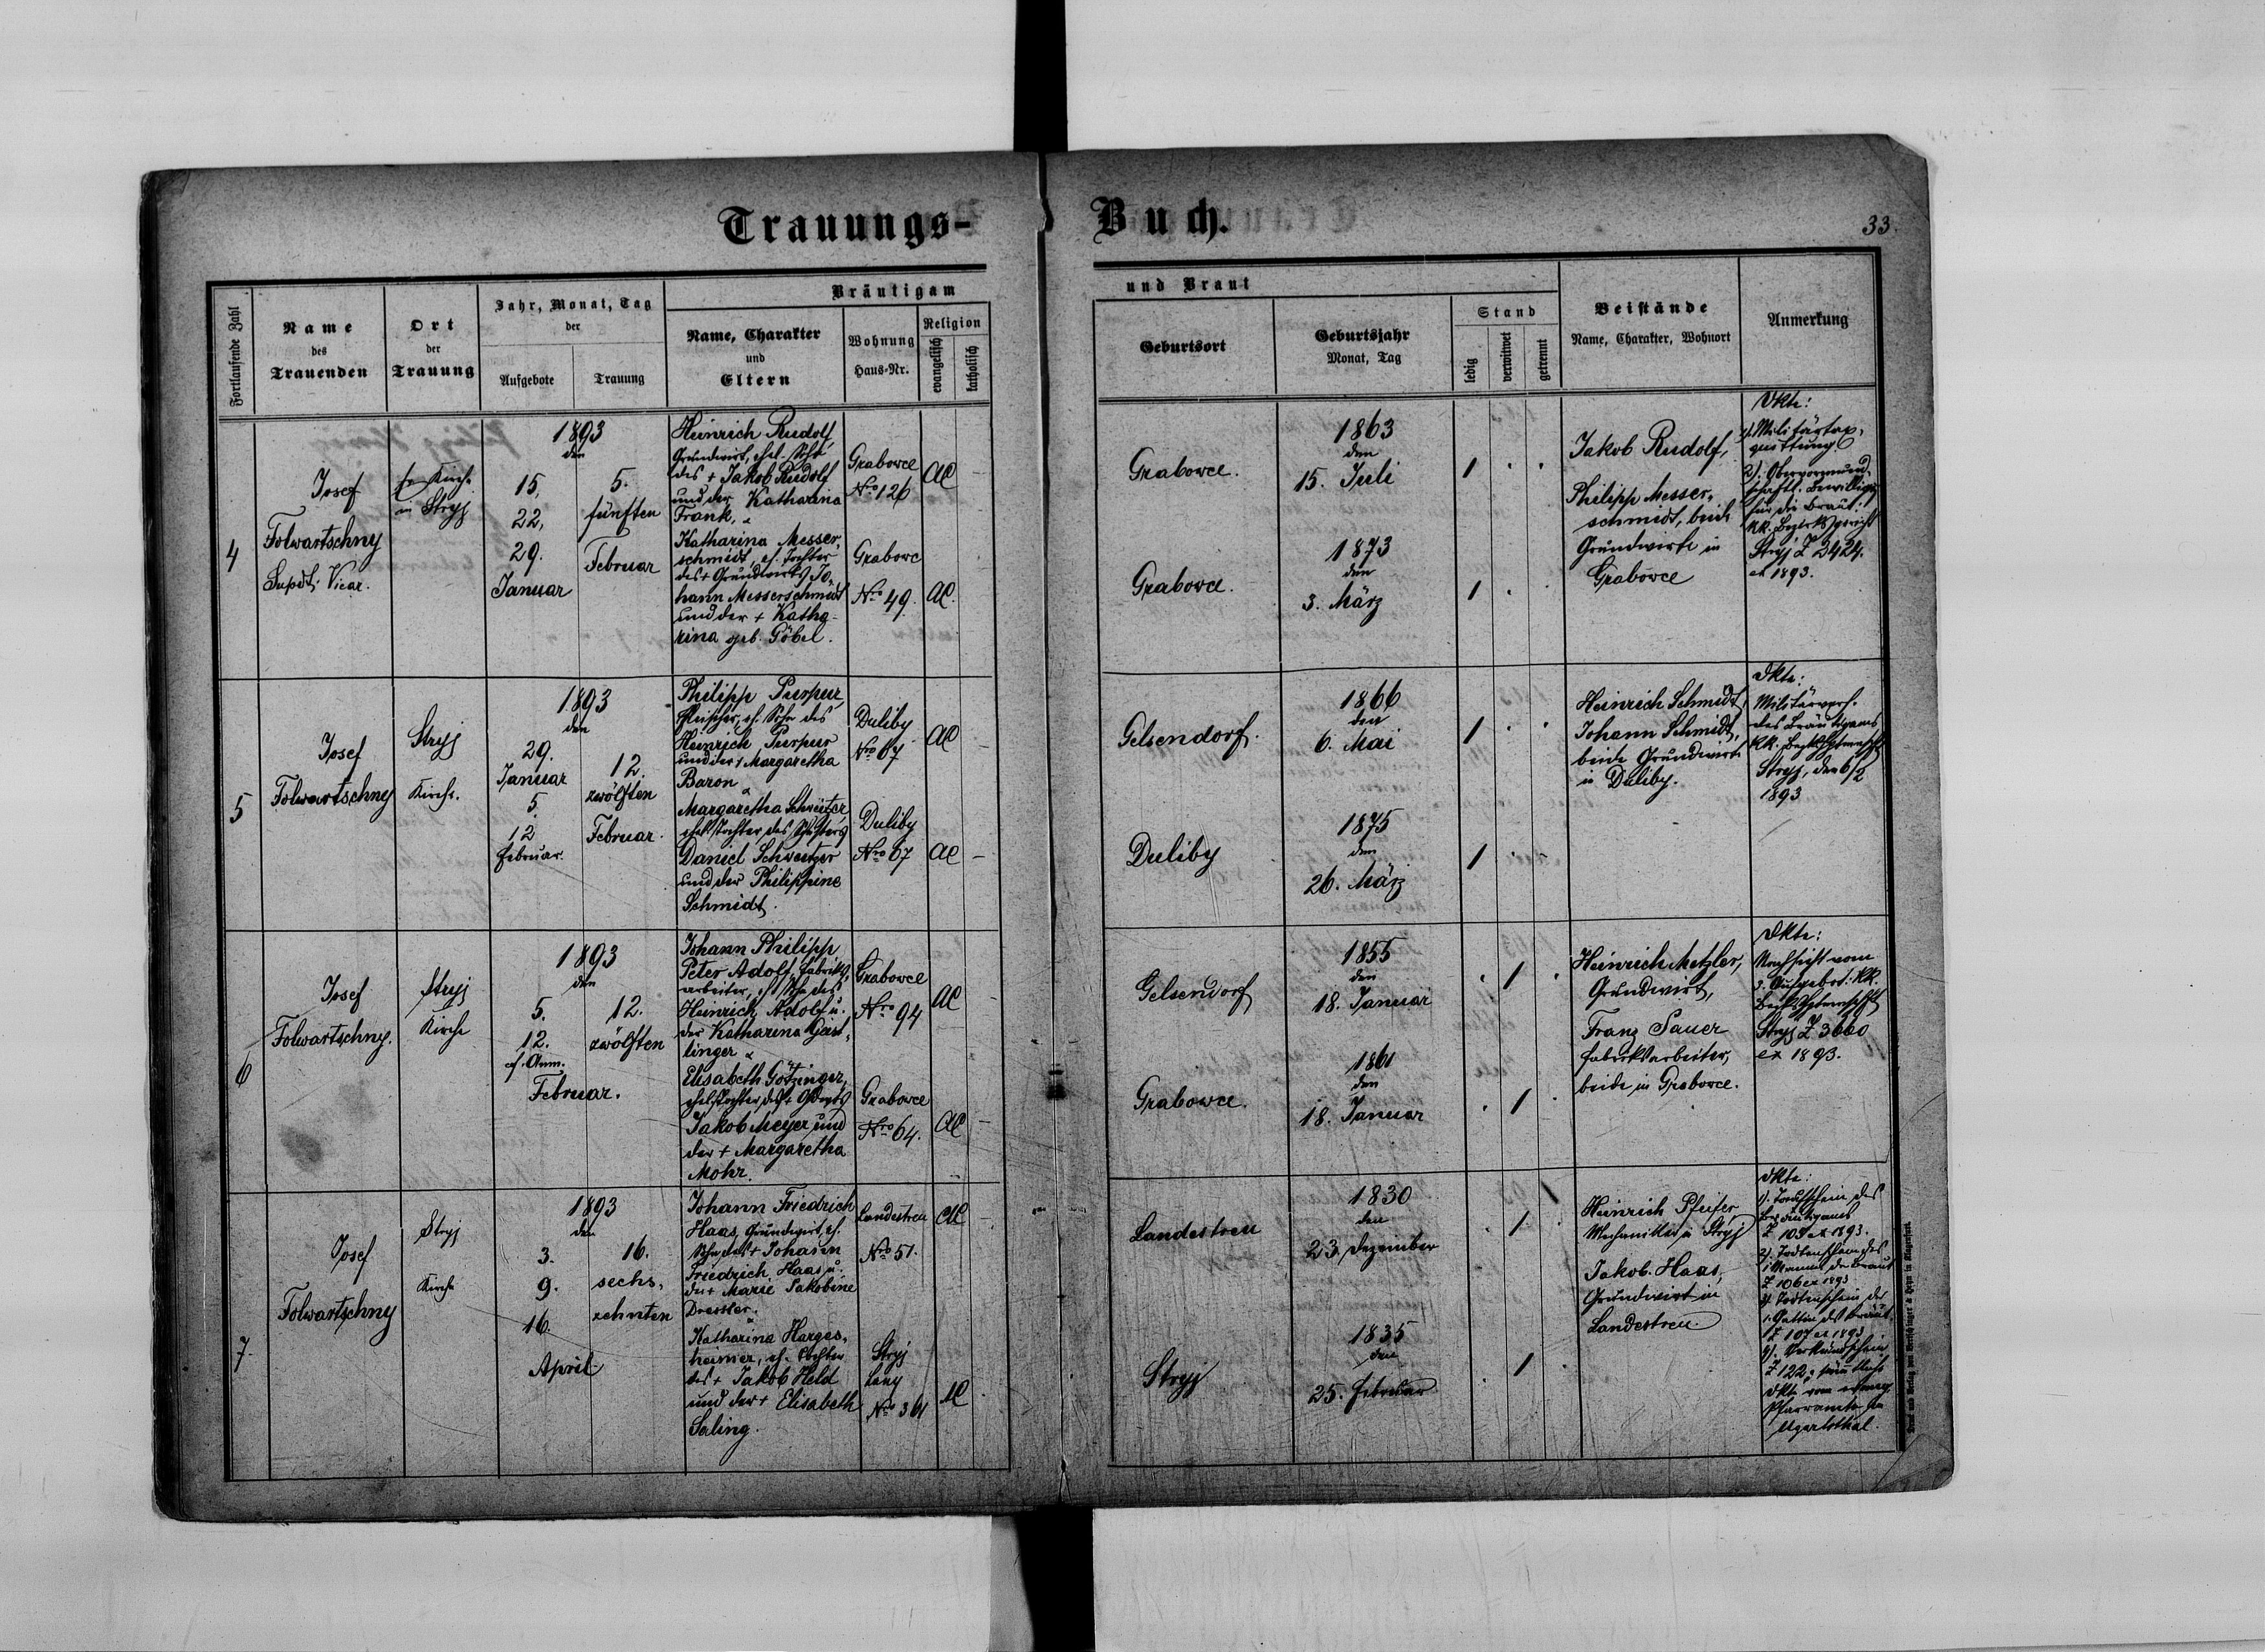 Trauungs-Buch.
33.
Fortlaufende Zahl
Name
des
Trauenden
Ort
der
Trauung
Jahr, Monat, Tag
der
Aufgebote
Trauung
Bräutigam
Name, Charakter
und
Eltern
Wohnung
Haus-Nr.
Religion
evangelisch
katholisch
und Braut
Geburtsort
Geburtsjahr
Monat, Tag
Stand
ledig
verwitwet
getrennt
Beistände
Name, Charakter, Wohnort
Anmerkung
4
Josef
Folwartschny
Supdt. Vicar.
Kirche
in Stryj
1893
den
15,
22,
29.
Januar
5.
fünften
Februar
Heinrich Rudolf,
Grundwirt, ehel. Sohn
des + Jakob Rudolf
und der Katharina
Frank,
Katharina Messer-
schmidt, eh. Tochter
des + Grundwirts Jo-
hann Messerschmidt
und der + Katha-
rina geb. Göbel.
Grabowce
Nro 126
AC
Grabowce
Nro 49.
AC.
Grabowce.
1863
den
15. Juli
1
Grabowce.
1873
den
3. März
1
Jakob Rudolf,
Philipp Messer-
schmidt, beide
Grundwirte in
Grabowce
Dkte:
1). Militärtax-
quittung
2). Obervormund-
schaftl. Bewillig.
für die Braut:
kk. Bezirksgericht
Stryj Z 2424.
ex 1893.
5
Josef
Folwartschny
Stryj
Kirche.
1893
den
29.
Januar
5.
12
Februar.
12.
zwölften
Februar.
Philipp Purpur,
Fleischer, eh. Sohn des
Heinrich Purpur
und der + Margaretha
Baron
Margaretha Schweitzer,
ehel. Tochter des
Daniel Schweitzer
und der Philippine
Schmidt.
Duliby
Nro 67
AC
Duliby
Nro 67
AC
Gelsendorf.
1866
den
6. Mai
1
Duliby
1875
den
26. März
1
Heinrich Schmidt,
Johann Schmidt,
beide Grundwirte
in Duliby.
Dkte:
des Bräutigams
Stryj, den 6/2
1893
6
Josef
Folwartschny.
Stryj
Kirche
1893
den
5.
12.
cf. Anm.
Februar.
12.
zwölften
Johann Philipp
Peter Adolf, Fabriks-
arbeiter, eh. Sohn des
Heinrich Adolf u.
der Katharina
linger
Elisabeth Götzinger,
ehel. Tochter des +
Jakob Meyer und
der + Margaretha
Mohr.
Grabowce
Nro 94
AC
Grabowce
Nro 64.
AC
Gelsendorf
1855
den
18. Januar
1
Grabowce.
1861
den
18. Januar
1
Heinrich Metzler,
Grundwirt,
Franz Sauer
Fabriksarbeiter,
beide in Grabowce.
Dkte:
Nachsicht vom
3. Aufgebot: kk.
Stryj Z 3660
ex 1893.
7.
Josef
Folwartschny
Stryj
Kirche
1893
den
3.
9.
16.
April
16.
sechs-
zehnten
Johann Friedrich
Haas, Grundwirt, eh.
Sohn des + Johann
Friedrich Haas u.
der + Marie Jakobine
Dressler.
Katharina Harges-
heimer, eh. Tochter
des + Jakob Held
und der + Elisabeth
Saling.
Landestreu
Nro 51.
AC
Stryj
Lany
Nro 361
AC
Landestreu
1830
den
23. Dezember
1
Stryj
1835
den
25. Februar
1
Heinrich Pfeifer
Mechaniker in Stryj
Jakob Haas,
Grundwirt in
Landestreu.
Dkte:
1). Taufschein des
Bräutigams
Z 105 ex 1893.
2). Todtenschein des
1. Mannes der Braut
Z 106 ex 1893
3). Todtenschein der
1. Gattin des Bräut.
Z 107 ex 1893
4). Verkündschein
Z 122; sämtliche
Dkte vom evang.
Pfarramte in
Ugartsthal.
Druck und Verlag von Bertschinger & Heyn in Klagenfurt.